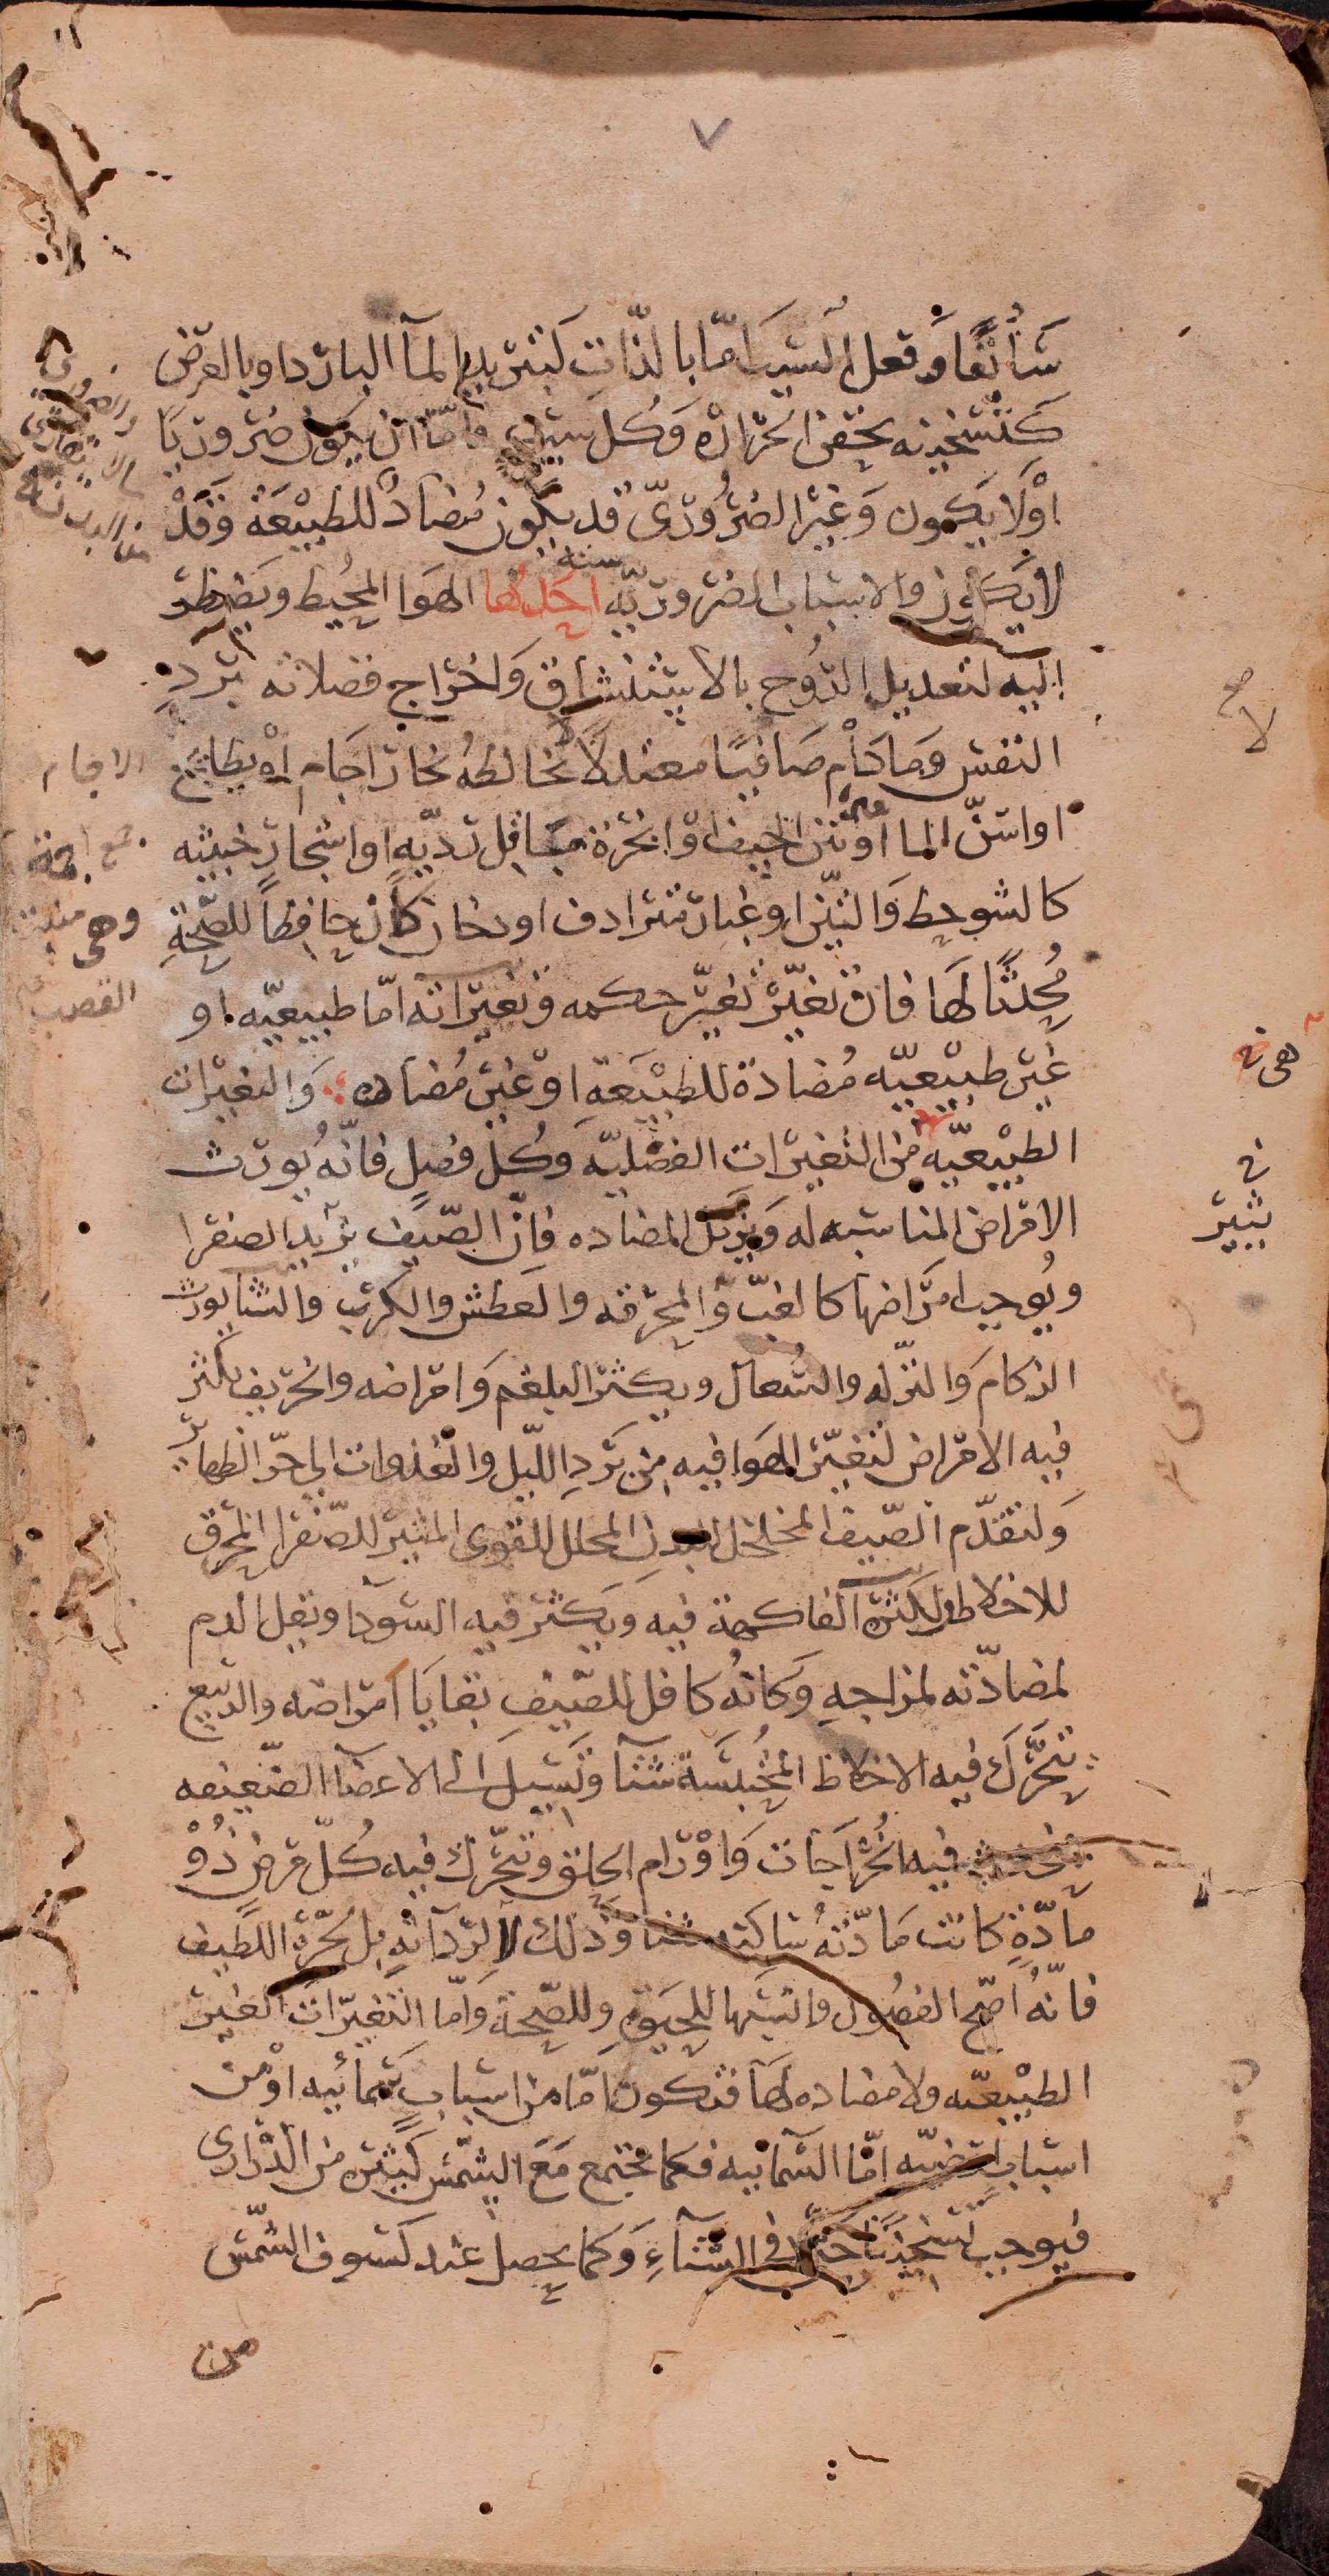 ٧
سابقا وفعل السبب اما بالذات كتبريد الماء البارد او بالعرض
كتسخينه بحقن الحرارة وكل سبب فاما ان يكون ضروريا
او لا يكون وغير الضروري قد يكون مضادا للطبيعة وقد
لا يكون والاسباب الضروريه سته احدها الهوا المحيط ويضطر
اليه لتعديل الروح بالاستنشاق واخراج فضلاته برد
النفس وما دام صافيا معتدلا لا يخالطه بخار اجام او بطائح
او اسن الما او نتن الجيف او ابخرة مباقل رديه او اشجار خبيثه
كالشوحط والتين او غبار مترادف او دخان كان حافظا للصحة
محدثا لها فان تغير تغير حكمه وتغيراته اما طبيعيه او
غير طبيعيه مضادة للطبيعة او غير مضاده والتغيرات
الطبيعيه من التغيرات الفصليه وكل فصل فانه يورث
الامراض المناسبه له ويزيل المضاده فان الصيف يزيد الصفرا
ويوجب امراضها كالغب والمحرقه والعطش والكرب والشتا يورث
الزكام والنزله والسعال ويكثر البلغم وامراضه والخريف تكثر
فيه الامراض لتغير الهوا فيه من برد الليل والغدوات الى حر الظهاير
ولتقدم الصيف المخلخل للبدن المحلل للقوى المثير للصفرا المحرق
للاخلاط ولكثرة الفاكهة فيه ويكثر فيه السودا ويقل الدم
لمضادته لمزاجه وكانه كافل للصيف بقايا امراضه والربيع
تتحرك فيه الاخلاط المحتبسة شتا وتسيل الى الاعضا الضعيفه
فيحدث فيه الخراجات واورام الحلق وتتحرك فيه كل مرض ذو
مادة كانت مادته ساكنه شتا وذلك لا لرداته بل لحره اللطيف
فانه اصح الفصول وانسبها للحيوة وللصحة واما التغيرات الغير
الطبيعيه ولا مضاده لها فتكون اما من اسباب سمائيه او من
اسباب ارضيه اما السمائيه فكما تجتمع مع الشمس كثير من الدراري
فيوجب تسخينا حتى في الشتاء وكما يحصل عند كسوف الشمس
من
الاجام
جمع اجمة
وهي منبت
القصب
صح
لا